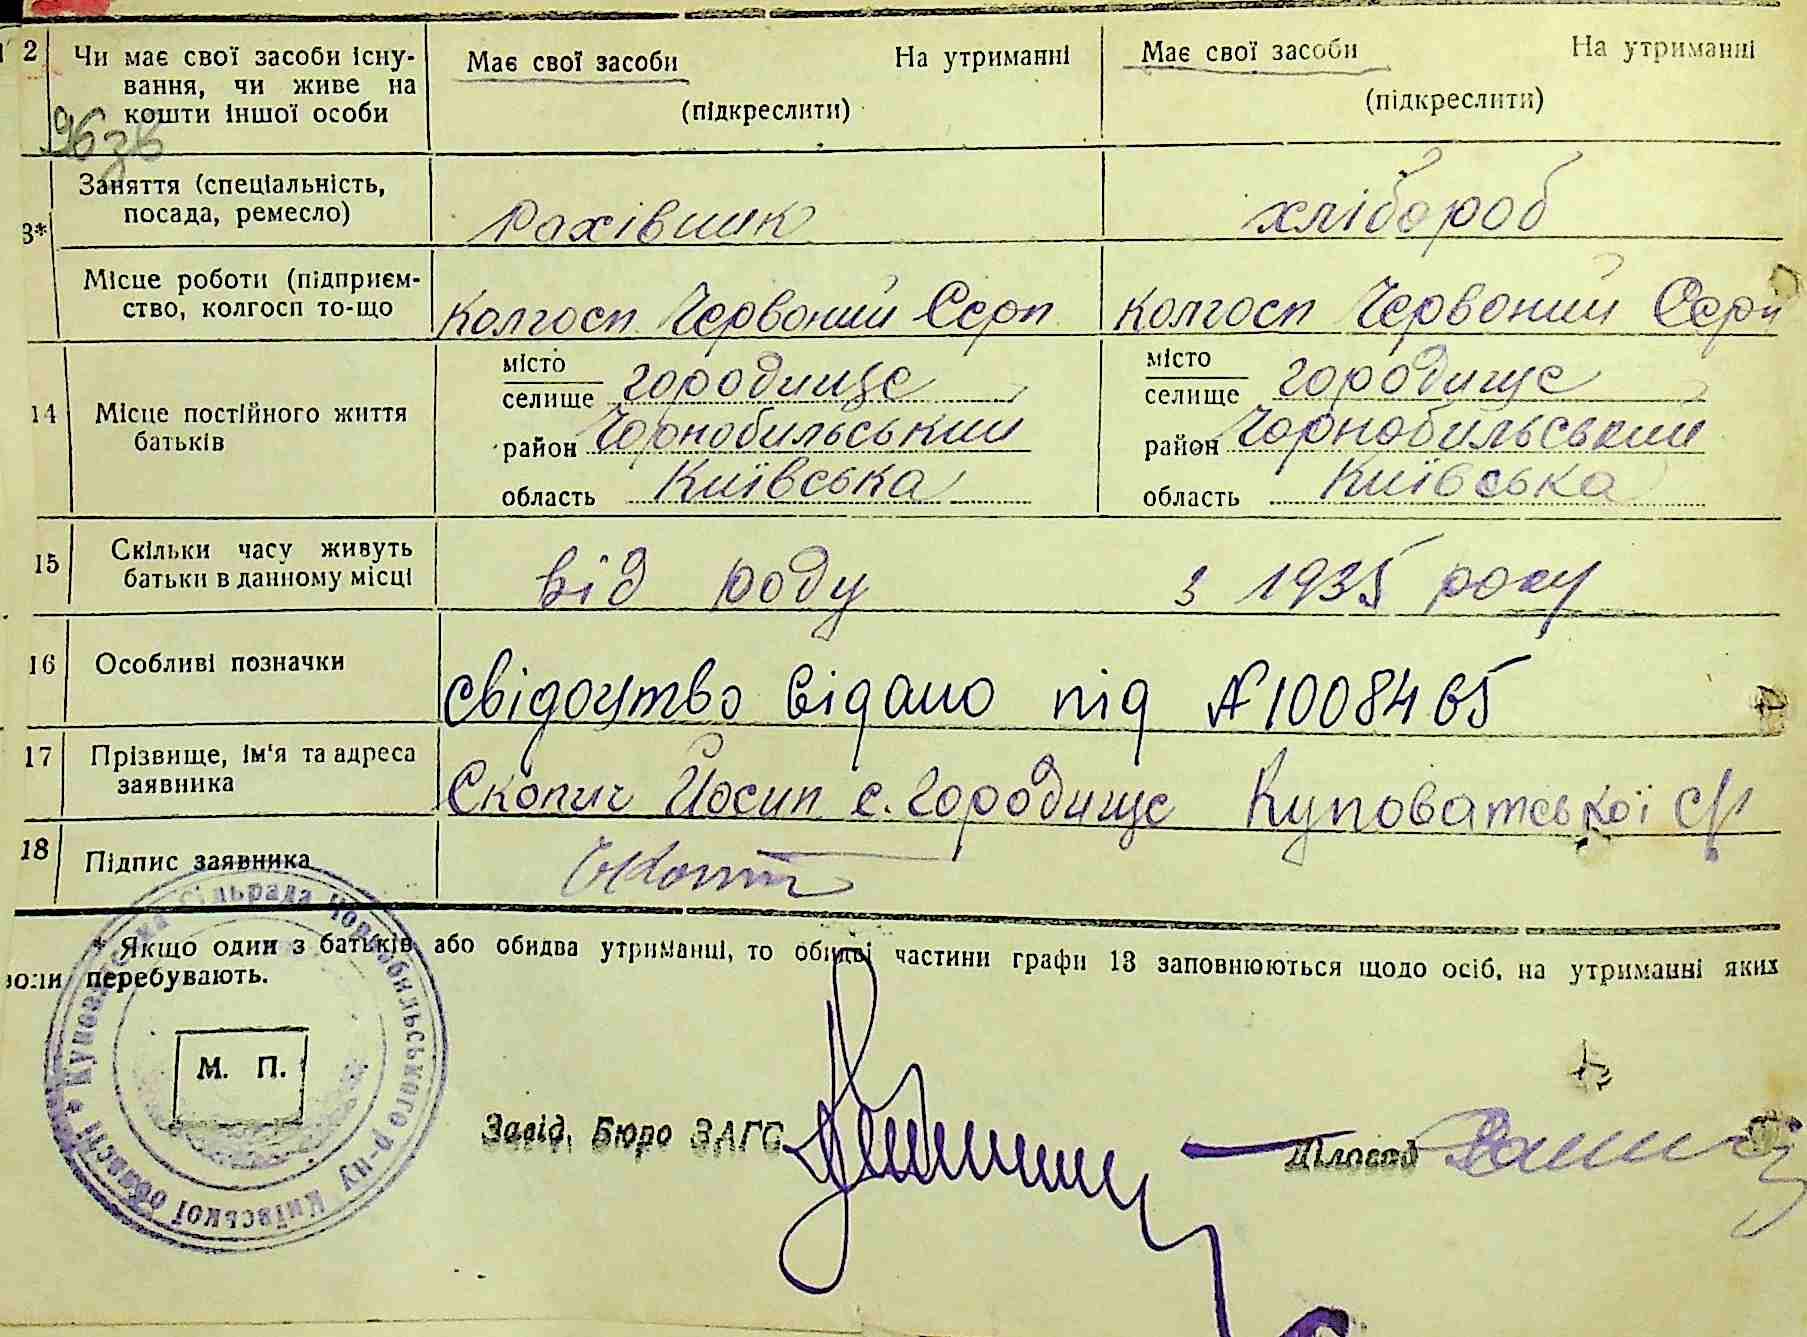 2 Чи має свої засоби існу- Має свої засоби На утриманні Має свої засоби На утриманні
вання, чи живе на
кошти іншої особи (підкреслити) (підкреслити)
96 зв
Заняття (спеціальність,
посада, ремесло) рахівник хлібороб
3*
Місце роботи (підприєм-
ство, колгосп то-що колгосп Червоний Серп колгосп Червоний Серп
14 Місце постійного життя
батьків
місто
селище городище
район Чорнобильський
область Київська
місто
селище городище
район Чорнобильський
область Київська
15 Скільки часу живуть
батьки в данному місці від роду з 1935 року
16 Особливі позначки свідоцтво відано під № 1008465
17 Прізвище, ім'я та адреса
заявника Скопич Йосип с. городище Куповатської с/р
18 Підпис заявника
* Якщо один з батьків або обидва утриманці, то обидві частини графи 13 заповнюються щодо осіб, на утриманні яких
перебувають.
М. П.
сільрада Чорнобильського р-ну Київської області *
Завід. Бюро ЗАГС Діловод